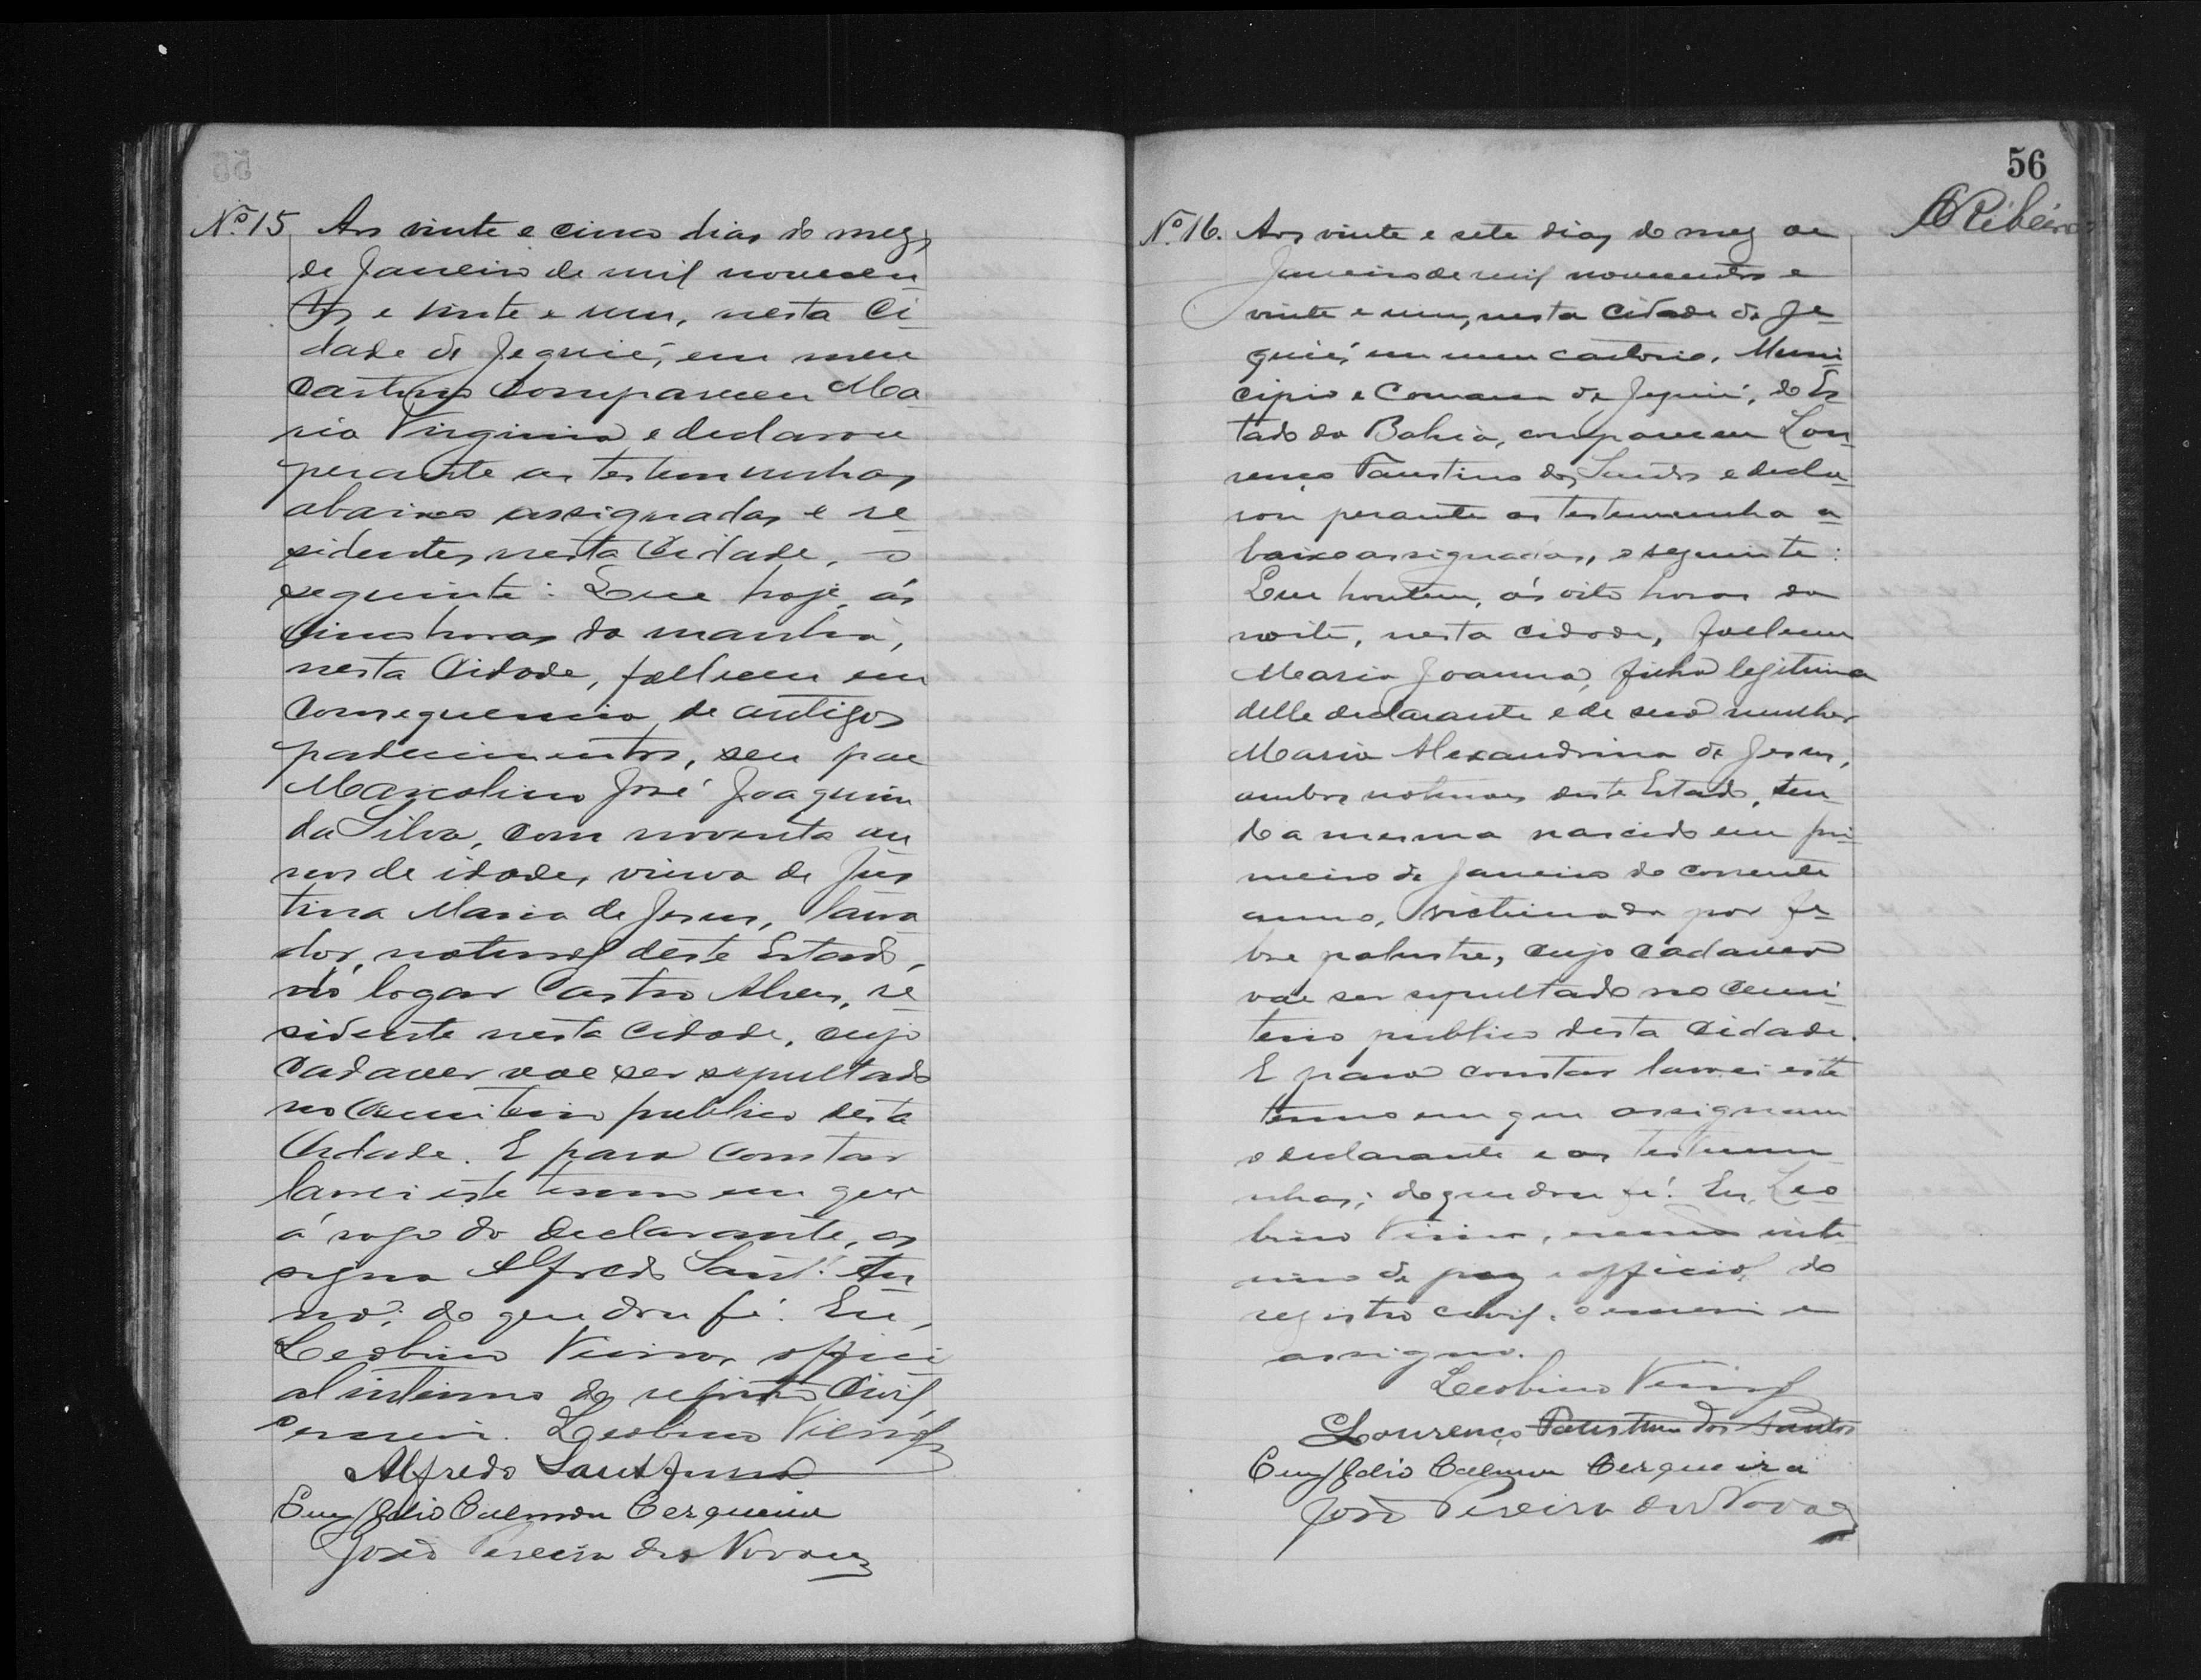 Nº 15 Aos vinte e cinco dias do mez
de Janeiro de mil novecen-
tos e vinte e um, nesta Ci-
dade de Jequié, em meu
Cartorio compareceu Ma-
ria Virginia e declarou
perante as testemunhas
abaixo assignadas e re-
sidentes nesta Cidade, o
seguinte: Que hoje, ás
cinco horas da manhã,
nesta Cidade, falleceu em
consequencia de antigos
padecimentos, seu pae
Marcolino José Joaquim
da Silva, com noventa an
nos de idade, viuvo de Jus
tina Maria de Jesus, lavra
dor, natural deste Estado,
no logar Castro Alves, re-
sidente nesta Cidade, cujo
cadaver vae ser sepultado
no Cemiterio publico desta
Cidade. E para constar
lavrei este termo em que
á rogo do declarante, as
signa Alfredo Sant'An-
na; do que dou fé. Eu,
Leobino Vieira, offici
al interino do registro Civil,
o escrevi. Leobino Vieira
Alfredo Sant'Anna
Calmon Cerqueira
João Pereira dos Novaes
56
Ribeiro
Nº 16. Aos vinte e sete dias do mez de
Janeiro de mil novecentos e
vinte e um, nesta Cidade de Je-
quié, em meu cartorio, Muni-
cipio e Comarca de Jequié, do Es
tado da Bahia, compareceu Lou-
renço Faustino dos Santos e decla-
rou perante as testemunha a-
baixo assignadas, o seguinte:
Que hontem, ás oito horas da
noite, nesta cidade, falleceu
Maria Joanna, filha legitima
delle declarante e de sua mulher
Maria Alexandrina de Jesus,
ambos naturaes deste Estado, ten-
do a mesma nascido em pri-
meiro de Janeiro do corrente
anno, victimada por fe-
bre palustre, cujo cadaver
vae ser sepultado no Cemi-
terio publico desta Cidade.
E para constar lavrei este
termo em que assignam
o declarante e as testemu-
nhas; do que dou fé. Eu, Leo
bino Vieira, inte
rino de paz e official do
registro civil, o escrevi e
assigno.
Leobino Vieira
Lourenço Faustino dos Santos
Calmon Cerqueira
João Pereira dos Novaes